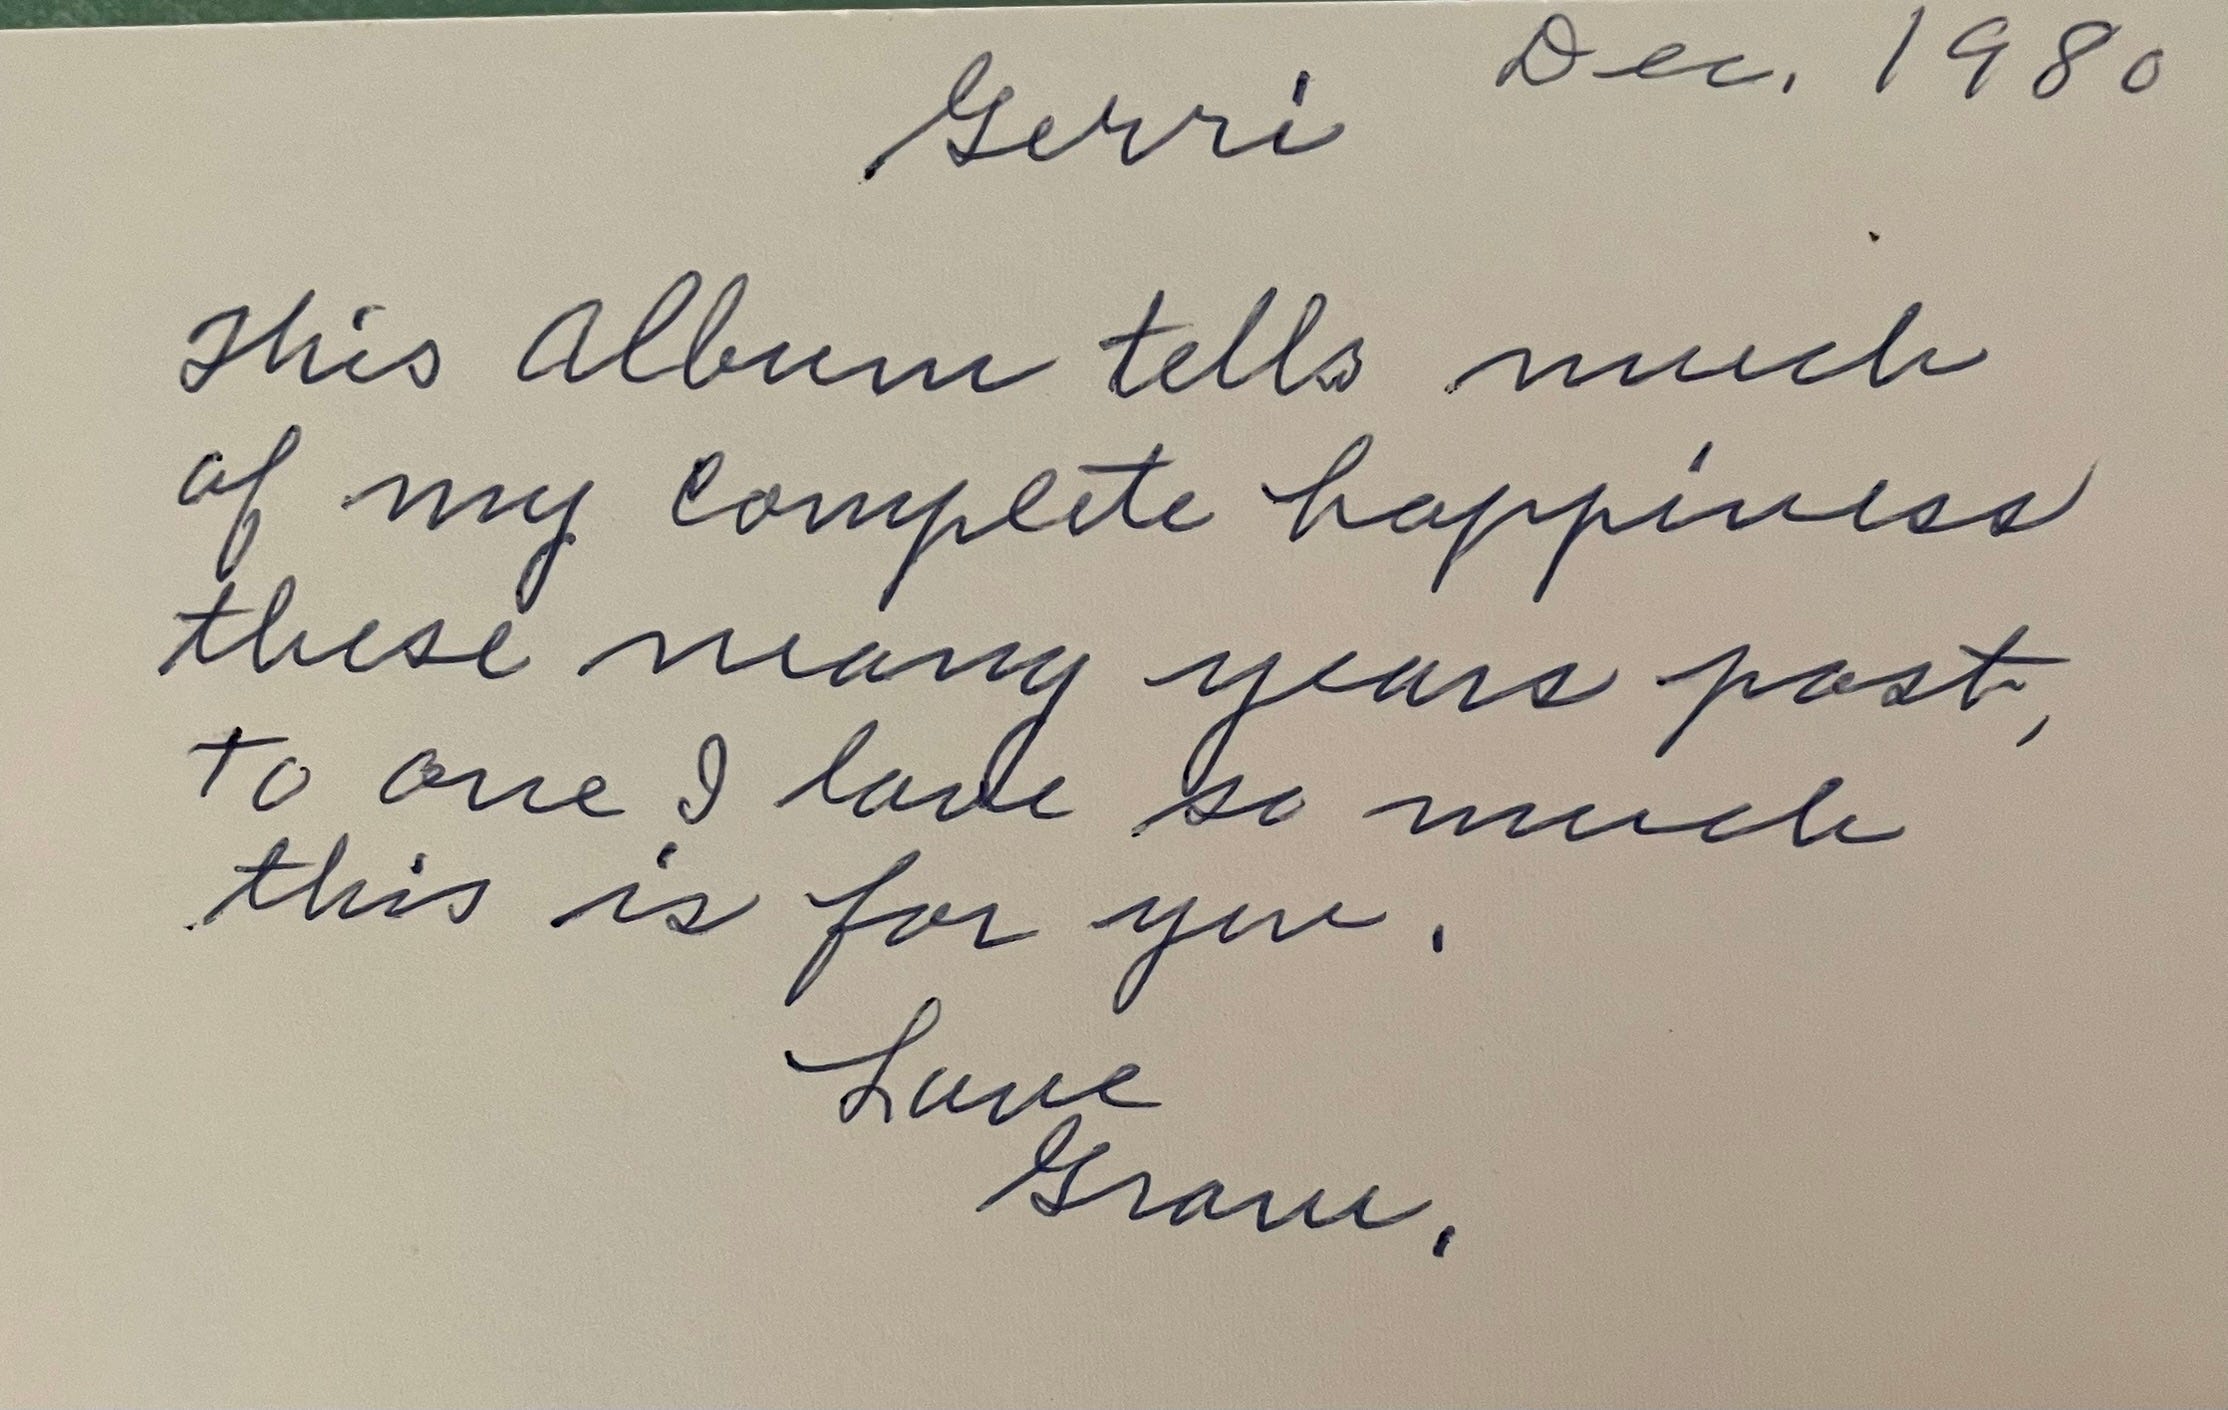 Dec. 1980
Gerri
This Album tells much
of my complete happiness
these many years past,
to one I love so much
this is for you.
Love
Gram.